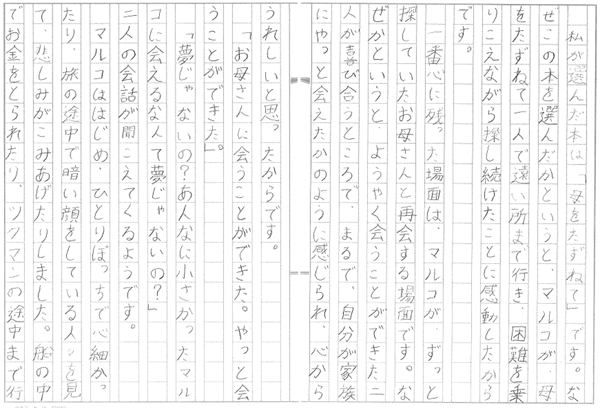 私が選んだ本は「母をたずねて」です。な
ぜこの本を選んだかというと、マルコが、母
をたずねて一人で遠い所まで行き、困難を乗
りこえながら探し続けたことに感動したから
です。
一番心に残った場面は、マルコが、ずっと
探していたお母さんと再会する場面です。な
ぜかというと、ようやく会うことができた二
人が喜び合うところで、まるで、自分が家族
にやっと会えたかのように感じられ、心から
うれしいと思ったからです。
「お母さんに会うことができた。やっと会
うことができた」。
「夢じゃないの?あんなに小さかったマル
コに会えるなんて夢じゃないの?」
二人の会話が聞こえてくるようです。
マルコははじめ、ひとりぼっちで心細かっ
たり、旅の途中で暗い顔をしている人々を見
て、悲しみがこみあげたりしました。船の中
でお金をとられたり、ツクマンの途中まで行